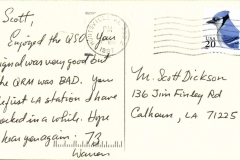 Scott,
Enjoyed the QSO. Your
signal was very good but
the QRM was BAD. You
first LA station I have
worked in a while. Hope
hear you again. 73
Warren
USA
20
M. Scott Dickson
136 Jim Finley Rd
Calhoun, LA 71225